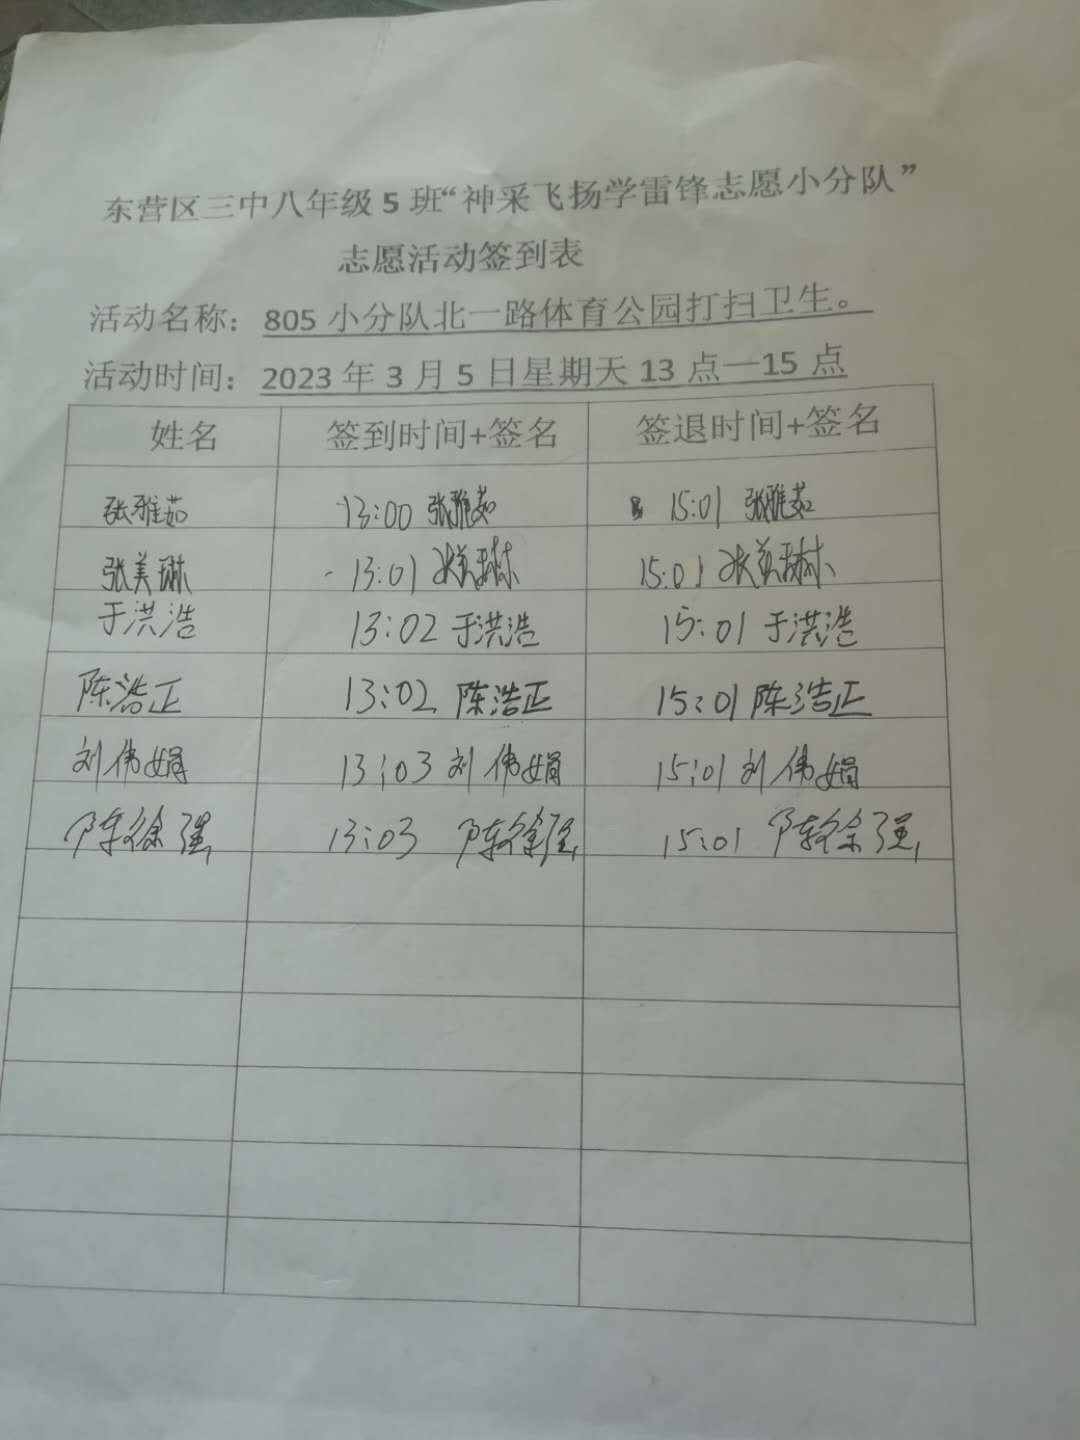 东营区三中八年级 5 班“神采飞扬学雷锋志愿小分队”
志愿活动签到表
活动名称：805 小分队北一路体育公园打扫卫生。
活动时间：2023 年 3 月 5 日星期天 13 点—15 点
姓名 签到时间+签名 签退时间+签名
张雅茹 13:00 张雅茹 15:01 张雅茹
张美琳 13:01 张美琳 15:01 张美琳
于洪浩 13:02 于洪浩 15:01 于洪浩
陈浩正 13:02 陈浩正 15:01 陈浩正
刘伟娟 13:03 刘伟娟 15:01 刘伟娟
陈徐强 13:03 陈徐强 15:01 陈徐强